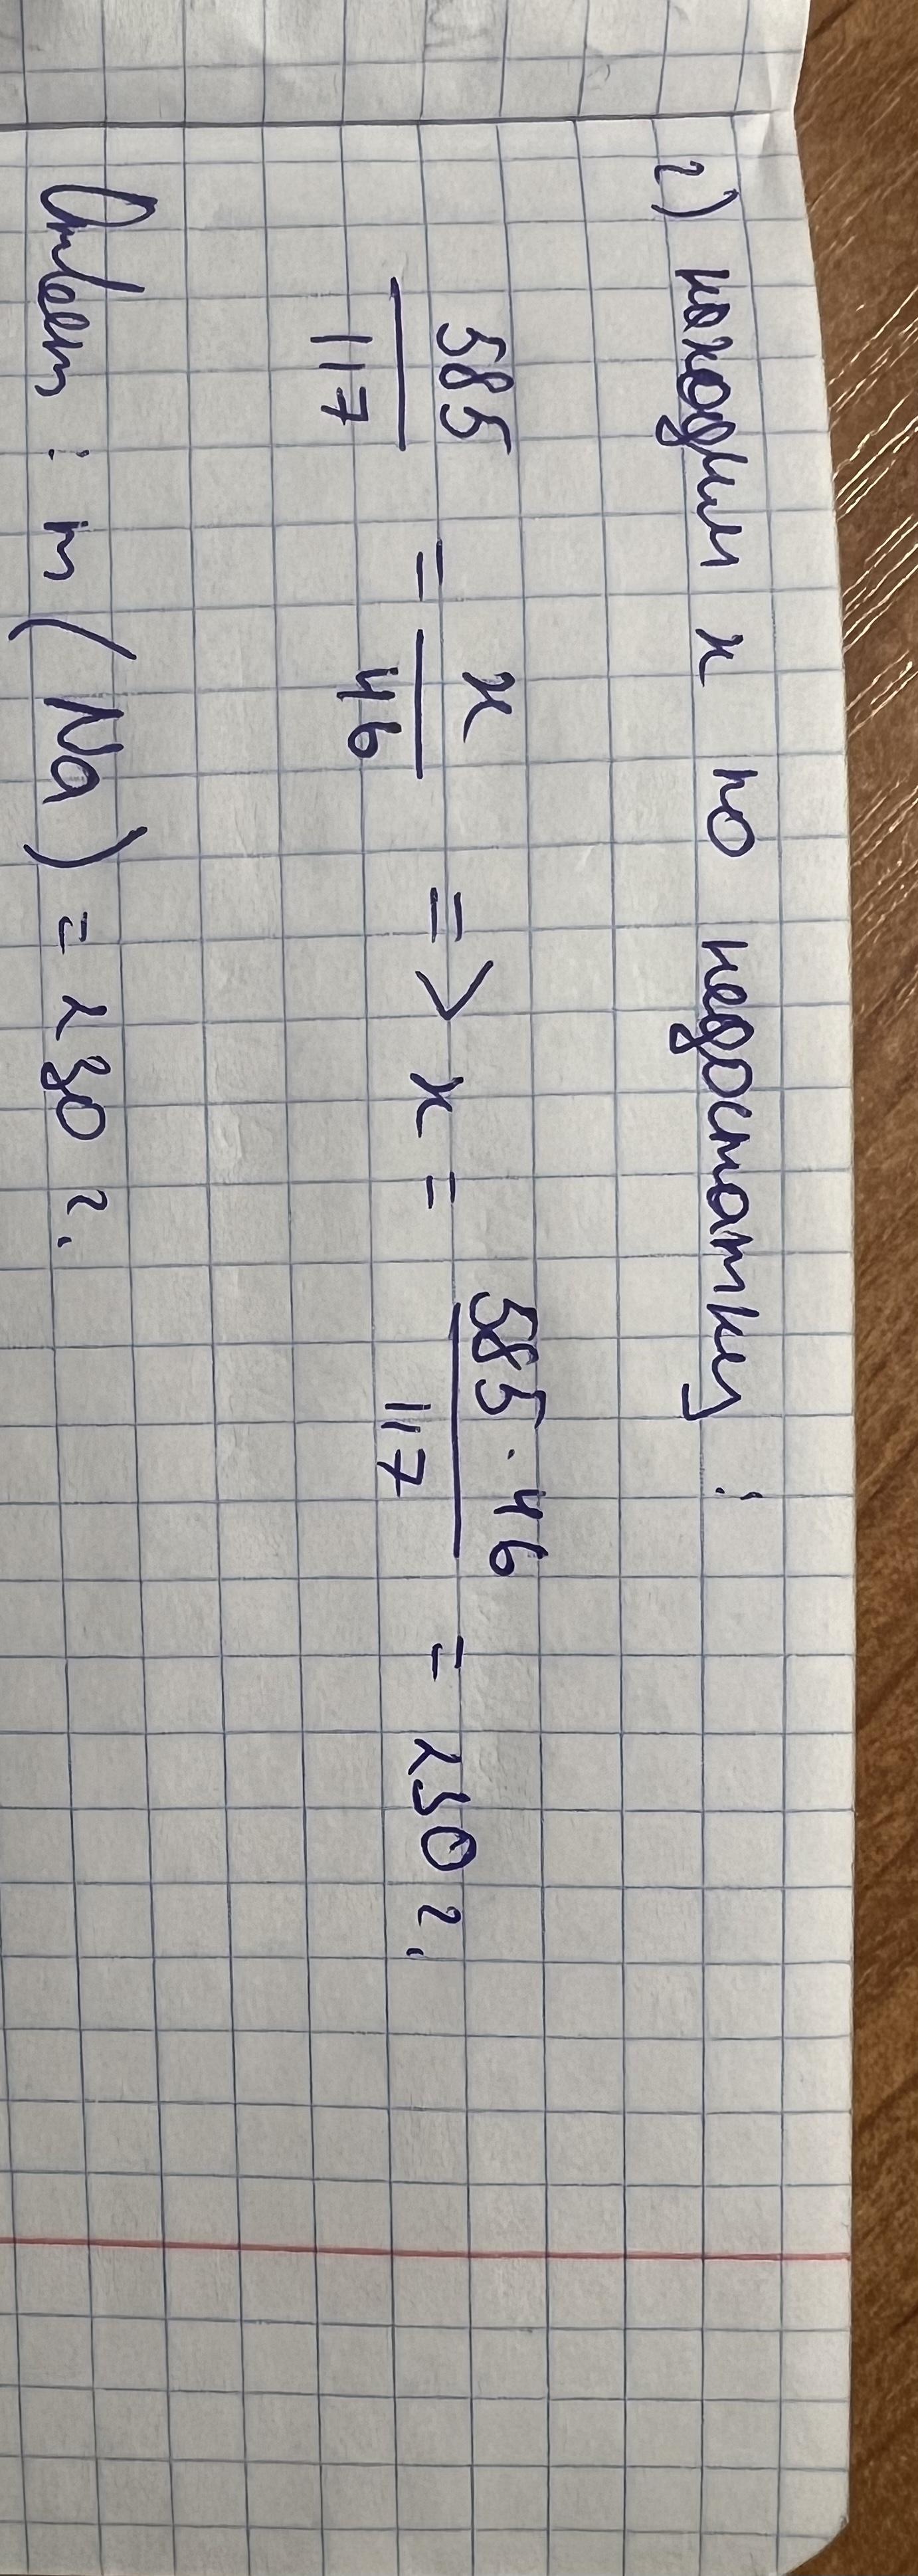 2) находим x по недостатку:
585/117 = x/46 => x = 585·46/117 = 230 г.
Ответ: m(Na) = 230 г.